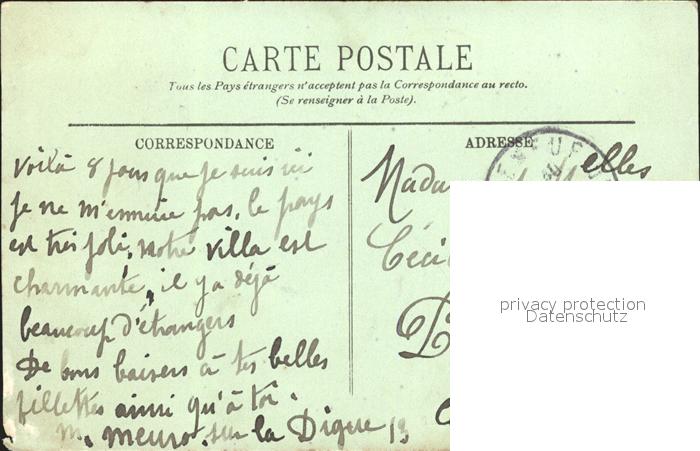 CARTE POSTALE
Tous les Pays étrangers n'acceptent pas la Correspondance au recto.
(Se renseigner à la Poste).
CORRESPONDANCE
ADRESSE
Voilà 8 jours que je suis ici
je ne m'ennuie pas, le pays
est très joli, notre villa est
charmante, il y a déjà
beaucoup d'étrangers
De bons baisers à tes belles
fillettes ainsi qu'à toi.
sur la Digue 13
elles
Mada
Céci
privacy protection
Datenschutz